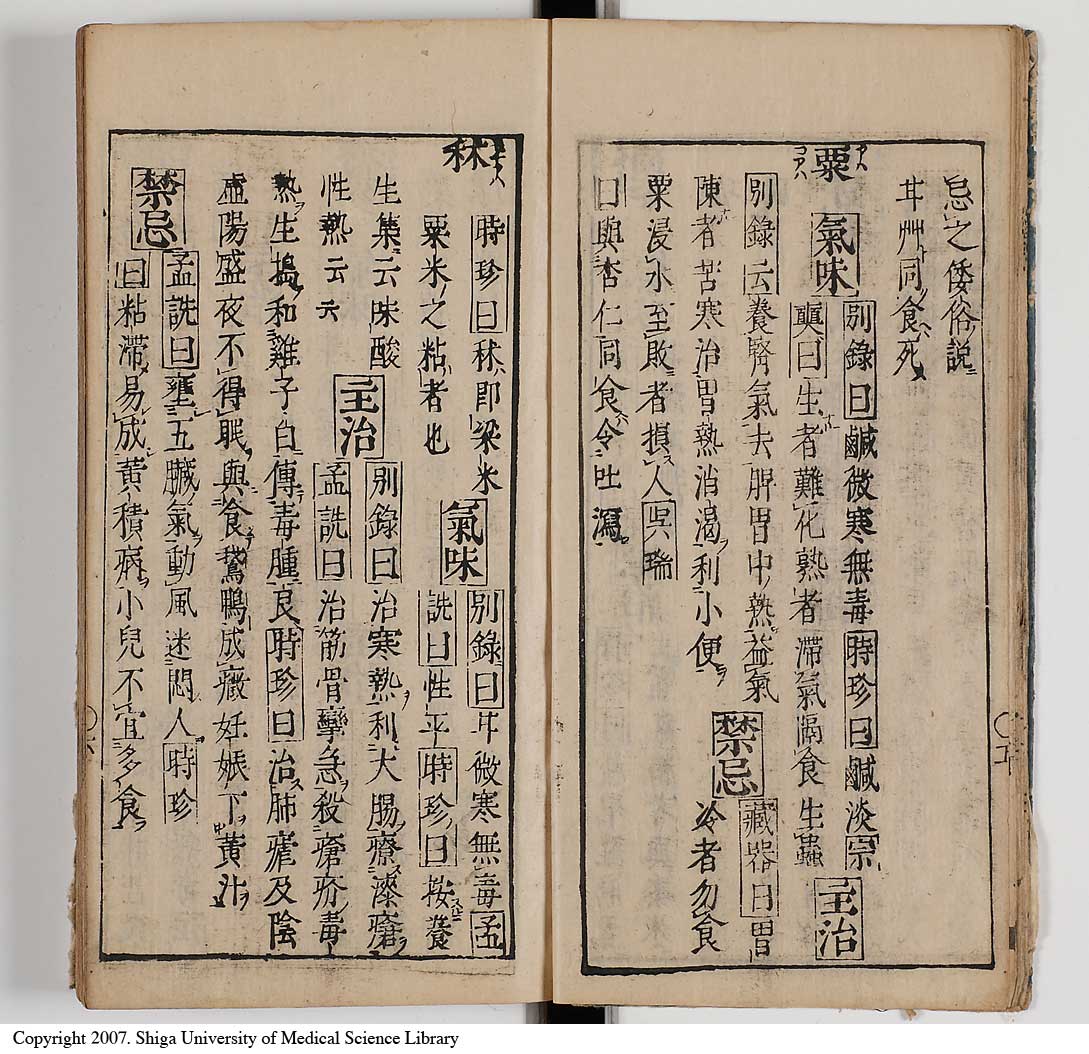 忌之倭俗說
甘艸同食死
粟
氣味
別錄曰鹹微寒無毒時珍曰鹹淡宗
奭曰生者難化熟者滯氣隔食生蟲
主治
別錄云養腎氣去脾胃中熱益氣
陳者苦寒治胃熱消渴利小便
禁忌
藏器曰胃
冷者勿食
粟浸水至敗者損人呉瑞
曰與杏仁同食令吐瀉
秫
時珍曰秫即梁米
粟米之粘者也
氣味
別錄曰甘微寒無毒孟
詵曰性平時珍曰按養
生集云味酸
性熱云云
主治
別錄曰治寒熱利大腸療漆瘡
孟詵曰治筋骨攣急殺瘡疥毒
熱生搗和雞子白傅毒腫良時珍曰治肺瘧及陰
虛陽盛夜不得眠與食鵞鴨成癥妊娠下黃汁
禁忌
孟詵曰壅五臟氣動風迷悶人時珍
曰粘滯易成黃積病小兒不宜多食
Copyright 2007. Shiga University of Medical Science Library